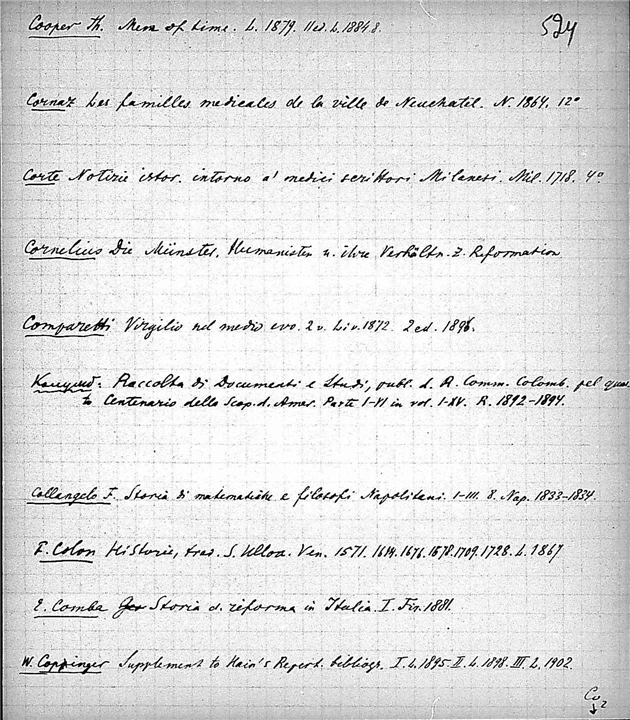 Cooper Th. Men of time. L. 1879. 11 ed. L. 1884 8.
524
Cornaz Les familles medicales de la ville de Neuchatel. N. 1864. 12°
Corte Notizie istor. intorno a' medici scrittori Milanesi. Mil. 1718. 4°
Cornelius Die Münster. Humanisten u. ihre Verhältn. z. Reformation
Comparetti Virgilio nel medio evo. 2 v. Liv. 1872. 2 ed. 1896.
Raccolta di Documenti e Studi, publ. d. R. Comm. Colomb. pel quar-
to Centenario della Scop. d. Amer. Parte I-VI in vol. I-XV. R. 1892-1894.
Collangelo F. Storia di matematiche e filosofi Napolitani. I-III. 8. Nap. 1833-1834.
F. Colon Historie, trad. S. Ulloa. Ven. 1571. 1614. 1676. 1678. 1709. 1728. L. 1867
E. Comba Storia d. riforma in Italia. I. Fir. 1881.
W. Coppinger Supplement to Hain's Repert. bibliogr. I. L. 1895 II. L. 1898. III. L. 1902.
Co 2